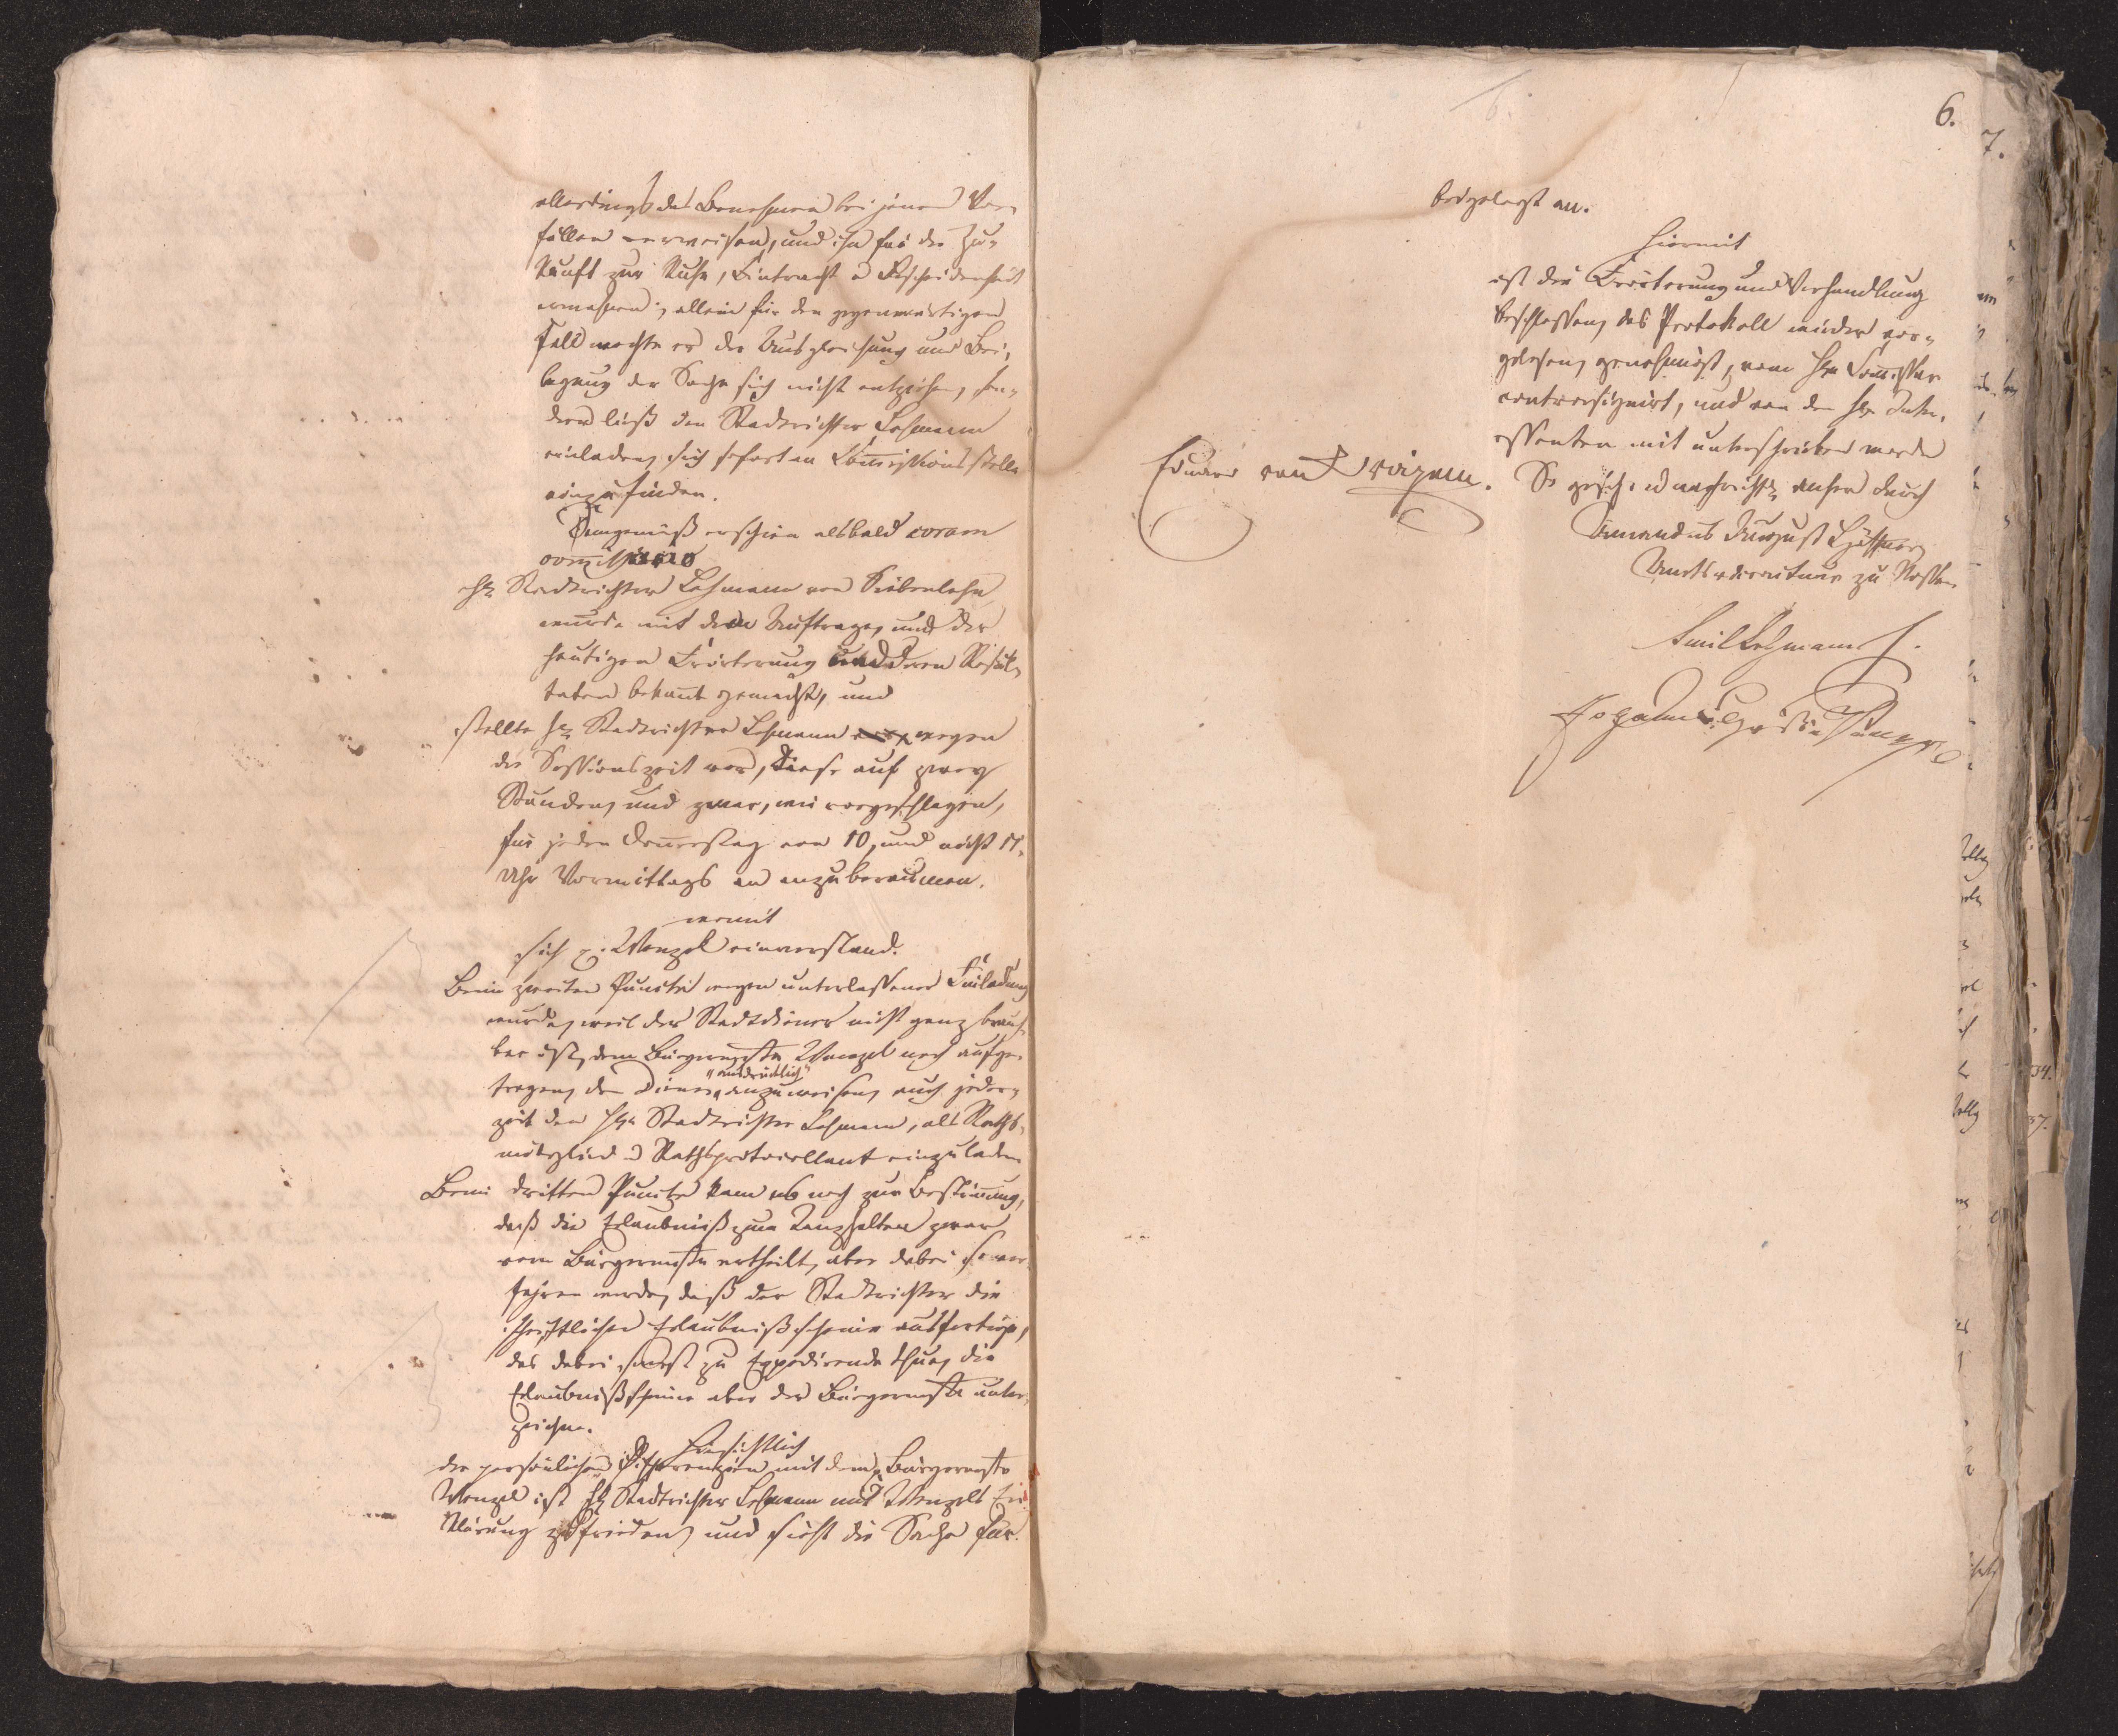 allerdings das Benehmen bei jenen Vor-
fällen verweisen, und ihn für die Zu-
kunft zur Ruhe, Eintracht u Bescheidenheit
ermahnen; allein für den gegenwärtigen
Fall mochte er der Ausgleichung und Bei-
legung der Sache sich nicht entziehen, son-
dern ließ den Stadtrichter Lehmann
einladen, sich sofort an Commissionsstelle
einzufinden.
Demgemäß erschien alsbald coram
commissario
Hr. Stadtrichter Lehmann von Siebenlehn
wurde mit dem Auftrage, und der
heutigen Erörterung und deren Resul-
taten bekannt gemacht, und
stellte Hr. Stadtrichter Lehmann wegen
der Sessionszeit vor, diese auf zwey
Stunden, und zwar, wie vorgeschlagen,
für jeden Donnerstag von 10, und nicht 11,
Uhr Vormittags an anzuberaumen.
womit
sich p. Wenzel einverstand.
Beim zweiten Puncte wegen unterlassener Einladung
wurde, weil der Stadtdiener nicht ganz brauch-
bar ist, dem Bürgermstr Wenzel noch aufge-
tragen, den Diener "ausdrücklich" anzuweisen, auch jeder-
zeit den Hrn Stadtrichter Lehmann, als Raths-
mitglied u Rathsprotocollant einzuladen
Beim dritten Puncte kam es noch zur Bestimmung,
daß die Erlaubniß zum Tanzhalten zwar
vom Bürgermstr ertheilt, aber dabei so ver-
fahren werde, daß der Stadtrichter die
schriftlichen Erlaubnißscheine ausfertige,
das dabei sonst zu Expedirende thue, die
Erlaubnißscheine aber der Bürgermstr unter-
zeichne.
Hinsichtlich
der persönlichen Differenzien mit dem Bürgermstr
Wenzel ist Hr. Stadtrichter Lehmann mit Wenzels Er-
klärung zufrieden, und sieht die Sache für
6.
7.
beigelegt an.
Hiermit
ist die Erörterung und Verhandlung
beschlossen, das Protokoll wieder vor-
gelesen, genehmigt, vom Hrn Commissar
contrasignirt, und von den Hrn Inter-
essenten mit unterschrieben worden
So gesch. u nachrichtl. anher durch
Amandus August
zu Nossen
Eduard von
Emil Lehmann
Johann